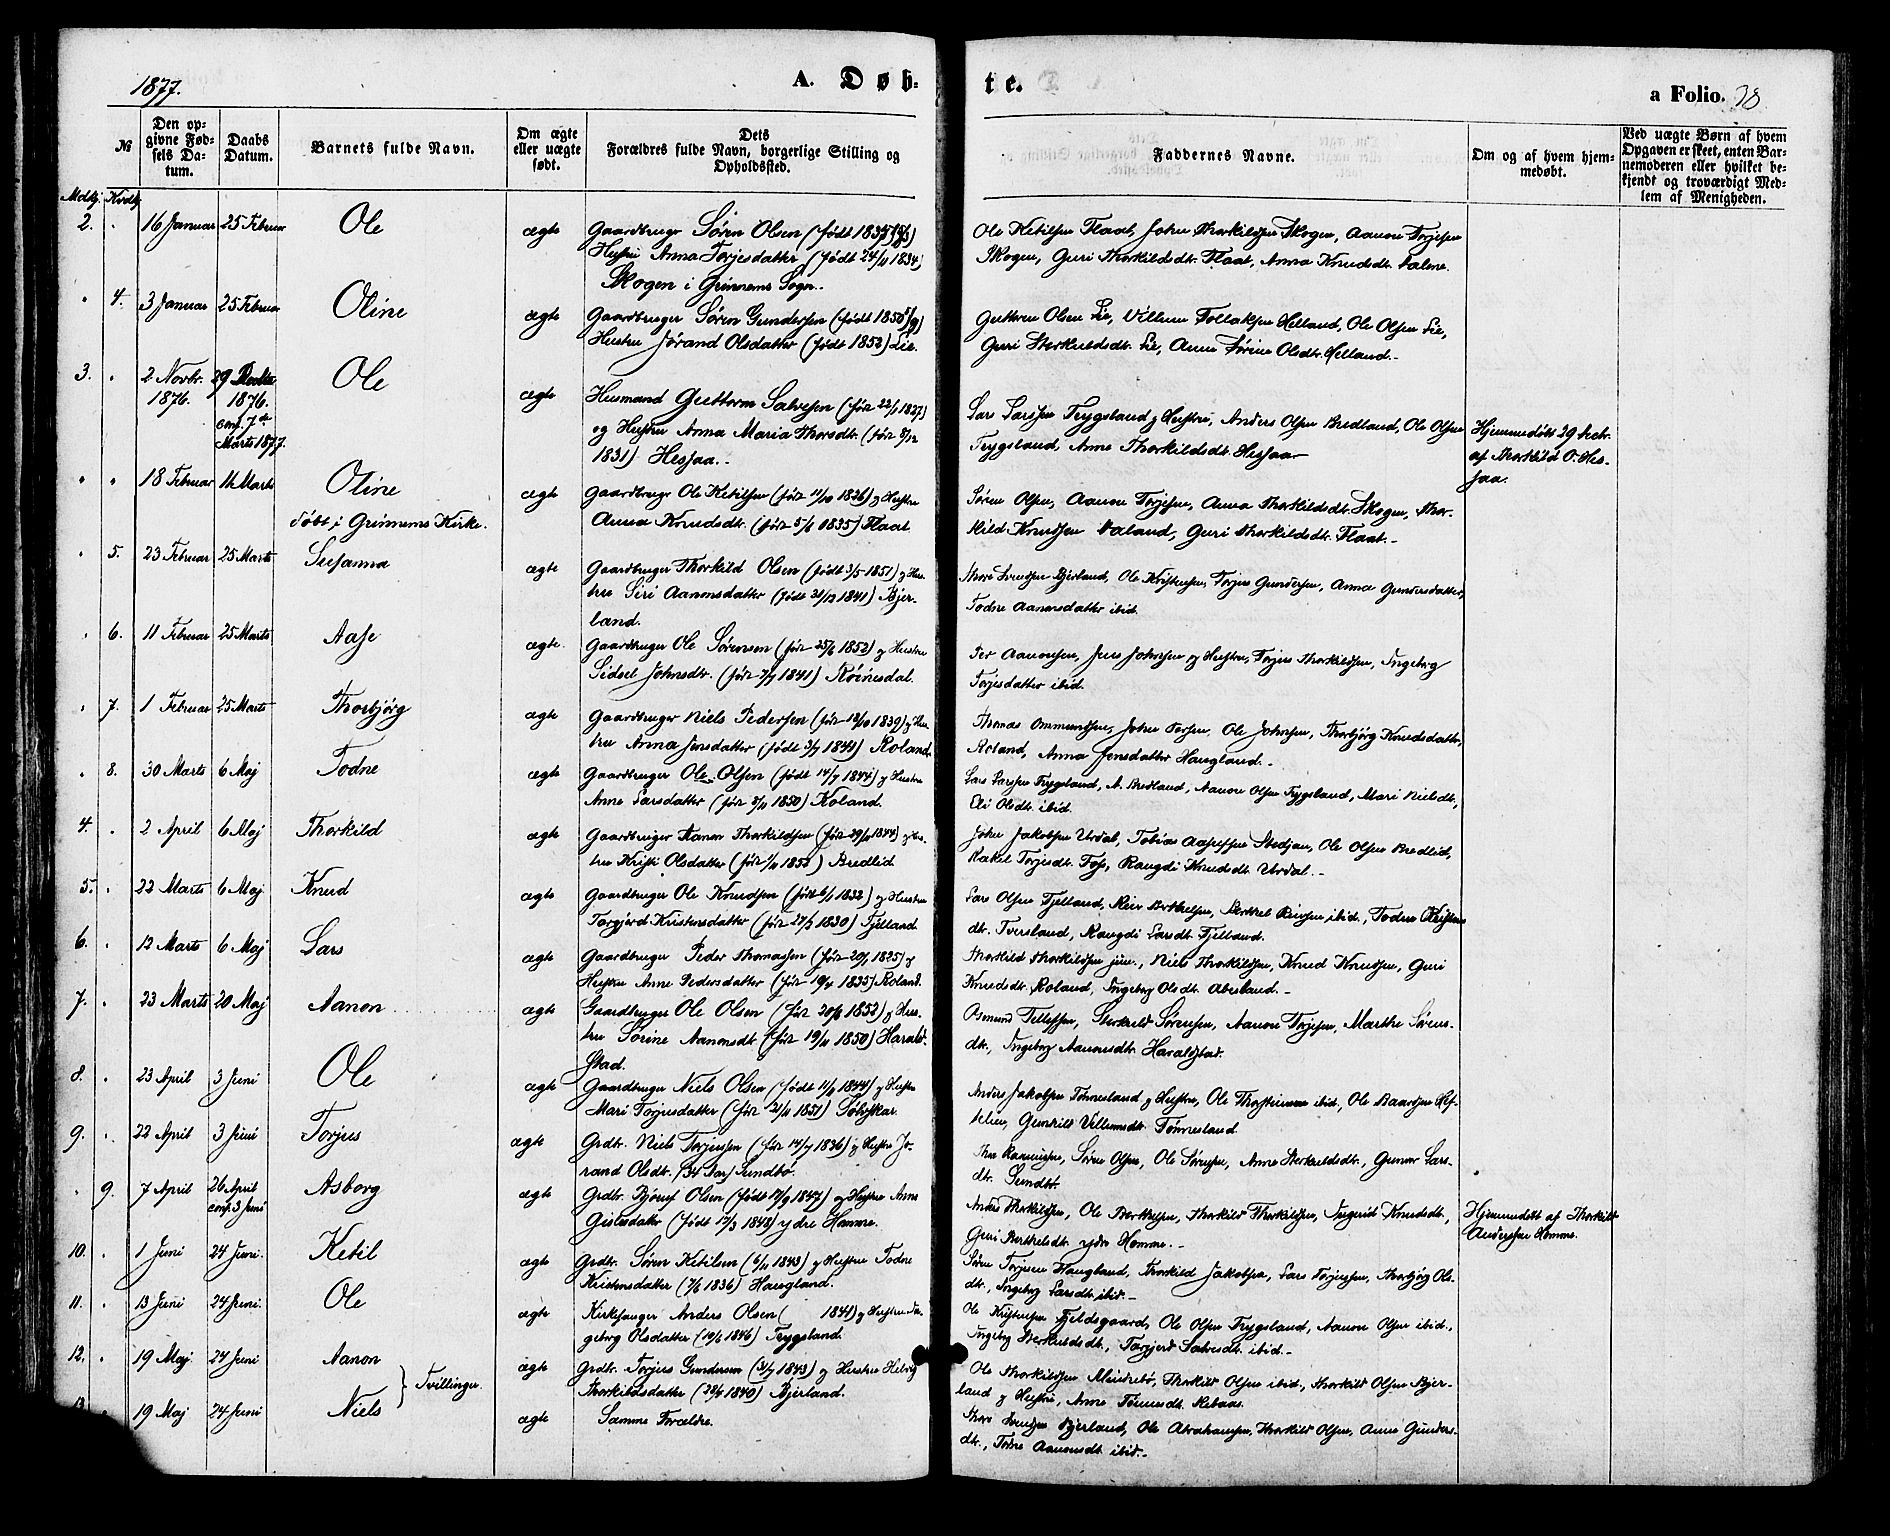 1877.
A. Døb-
te.
a Folio. 38.
№
Den op-
givne Fød-
sels Da-
tum.
Daabs
Datum.
Barnets fulde Navn.
Om ægte
eller uægte
født.
Dets
Forældres fulde Navn, borgerlige Stilling og
Opholdssted.
Faddernes Navne.
Om og af hvem hjem-
medøbt.
Ved uægte Børn af hvem
Opgaven er skeet, enten Bar-
nemoderen eller hvilket be-
kjendt og troværdigt Med-
lem af Menigheden.
Mdkj. Kvdkj.
2. 16 Januar 25 Februar Ole ægte Gaardbruger Søren Olsen (født
Hustru Anna Torjesdatter (født 24/11 1834)
Skogen i Grinnems Sogn.
Ole Ketilsen Flaat, John Thorkildsen Skogen, Aanon Torjesen
Skogen, Guri Thorkildsdt. Flaat, Anna Knudsdt. Valene.
4. 3 Januar 25 Februar Oline ægte Gaardbruger Søren Gundersen (født 1850) og
Hustru Jørand Olsdatter (født 1853) Lie.
Guttorm Olsen Lie, Villum Tollaksen Helland, Ole Olsen Lie,
Guri Sterkeldsdt. Lie, Anne Sørine Olsdt. Helland.
3. 2 Novbr. 29 Decbr. Ole ægte Husmand Guttorm Salvesen (før 22/1 1827)
1876. 1876.
conf. 7de
Marts 1877.
og Hustru Anna Maria Thorsdt. (før 8/12
1831) Hesjaa.
Lars Larssen Trygsland og Hustru, Anders Olsen Bredland, Ole Olsen
Trygsland, Anne Thorkildsdt. Hesjaa
Hjemmedøbt 29 Decbr.
af Thorkild O. Hes-
jaa.
18 Februar 11 Marts Oline ægte Gaardbruger Ole Ketilsen (før 11/10 1826) og Hustru
Døbt i Grinnems Kirke.
Anna Knudsdt. (før 5/6 1835) Flaat
Søren Olsen, Aanon Torjesen, Anna Thorkildsdt. Skogen, Thor-
kild Knudsen Valand, Guri Thorkildsdt. Flaat.
5. 23 Februar 25 Marts Susanna ægte Gaardbruger Thorkild Olsen (født 3/5 1851) og Hus-
tru Siri Aanonsdatter (født 31/12 1841) Bjer-
land.
Thore Svendsen Bjerland, Ole Kristensen, Torjus Gundersen, Anna Gundersdatter,
Todne Aanonsdatter ibid.
6. 11 Februar 25 Marts Aase ægte. Gaardbruger Ole Sørensen (før 25/6 1852) og Hustru
Sidsel Johnsdtr. (før 7/7 1841) Röinesdal.
Per Aanonsen, Jens Johnsen og Hustru, Torjus Thorkildsen, Ingeborg
Torjesdatter ibid.
7. 1 Februar 25 Marts Thorbjörg ægte Gaardbruger Niels Pedersen (før 18/10 1839) og Hus-
tru Anna Jensdatter (født 3/7 1841) Roland
Thomas Ommundsen, John Persen, Ole Johnsen, Thorbjörg Knudsdatter,
Roland, Anna Jensdatter Haugland.
8. 30 Marts 6 Maj Todne ægte Gaardbruger Ole Olsen (født 14/7 1844) og Hustru
Anne Larsdatter (før 2/11 1850) Roland.
Lars Larssen Trygsland, A. Bredland, Aanon Olsen Trygsland, Mari Nielsdt.,
Eli Olsdt. ibid.
4. 2 April 6 Maj Thorkild ægte Gaardbruger Aanon Thorkildsen (før 29/11 1844) og Hus-
tru Kristi Olsdatter (før 1/11 1852) Bredlid
John Jakobsen Urdal, Tobias Stedjan, Ole Olsen Bredlid,
Rakel Torjesdt. Foss, Raugdi Knudsdt. Urdal.
5. 22 Marts 6 Maj Knud ægte Gaardbruger Ole Knudsen (født 6/1 1832) og Hustru
Torgjerd Kristensdatter (før 27/2 1830) Fjelland
Lars Olsen Fjelland, Reier Berthelsen, ibid., Todne Kristens-
dt. Tversland, Raugdi Larsdt. Fjelland.
6. 12 Marts 6 Maj Lars ægte Gaardbruger Peder Thomassen (før 20/1 1825) og
Hustru Anne Pedersdatter (før 19/4 1835) Roland.
Thorkild Thorkildsen jun., Niels Thorkildsen, Knud Knudsen, Guri
Knudsdt. Roland, Ingeborg Olsdt. Abesland.
7. 23 Marts 20 Maj Aanon ægte Gaardbruger Ole Olsen (før 20/6 1852) og Hus-
tru Sørine Aanonsdt. (før 19/11 1850) Harald-
stad.
Osmund Tellefsen, Sterkeld Sørensen, Aanon Torjesen, Marthe Sørens-
dt., Ingeborg Aanonsdt. Haraldstad.
8. 23 April 3 Juni Ole ægte Gaardbruger Niels Olsen (født 11/11 1844) og Hustru
Mari Torjusdatter (før 21/11 1851) Sølvskar.
Anders Jakobsen Tönnesland og Hustru, Ole ibid., Ole Baardsen Hes-
telien, Gunhild Villumsdt. Tönnesland
9. 22 April 3 Juni Torjus ægte Grdbr. Niels Torjussen (før 14/7 1836) og Hustru Jö-
rand Olsdt. (34 Aar) Sundbö.
Jens Rasmussen, Søren Olsen, Ole Sörensen, Anne Sterkeldsdt., Gunvor Lars-
dt. Sundbö.
9. 7 April 26 April Asborg ægte Grdbr. Björuf Olsen (født 17/9 1847) og Hustru Anne
conf. 3 Juni
Gislesdatter (født 17/3 1848) ydre Homme.
Anders Thorkildsen, Ole Berthelsen, Thorkild Thorkildsen, Ingerid Knudsdt.,
Guri Berthelsdt. ydre Homme.
Hjemmedöbt af Thorkild
Anderssen Homme.
10. 1 Juni 24 Juni. Ketil ægte Grdbr. Søren Ketilsen (6/11 1843) og Hustru Todne
Kristensdatter (7/6 1836) Haugland.
Søren Torjesen Haugland, Thorkild Jakobsen, Lars Torjussen, Thorbjörg Ols-
dt., Ingeborg Larsdt. ibid.
11. 13 Juni 24 Juni. Ole ægte Kirkesanger Anders Olsen ( 1841) og Hustru In-
geborg Olsdatter (10/1 1846) Trygsland.
Ole Kristensen Fjeldsgaard, Ole Olsen Trygsland, Aanon Olsen ibid.,
Ingeborg Sterkeldsdt., Torgjerd Salvesdt. ibid.
12. 19 Maj 24 Juni Aanon ægte Grdbr. Torjus Gundersen (31/7 1843) og Hustru Helvig
Tvillinger.
Thorkildsdatter (29/4 1840) Bjerland.
Ole Thorkildsen Meinkebö, Thorkild Olsen ibid., Thorkild Olsen Bjer-
land og Hustru, Anne Tönnesdt. Rebaas.
19 Maj 24 Juni Niels ægte Samme Forældre.
Thore Svendsen Bjerland, Ole Abrahamsen, Thorkild Olsen, Anne Gunders-
dt., Todne Aanonsdt. ibid.